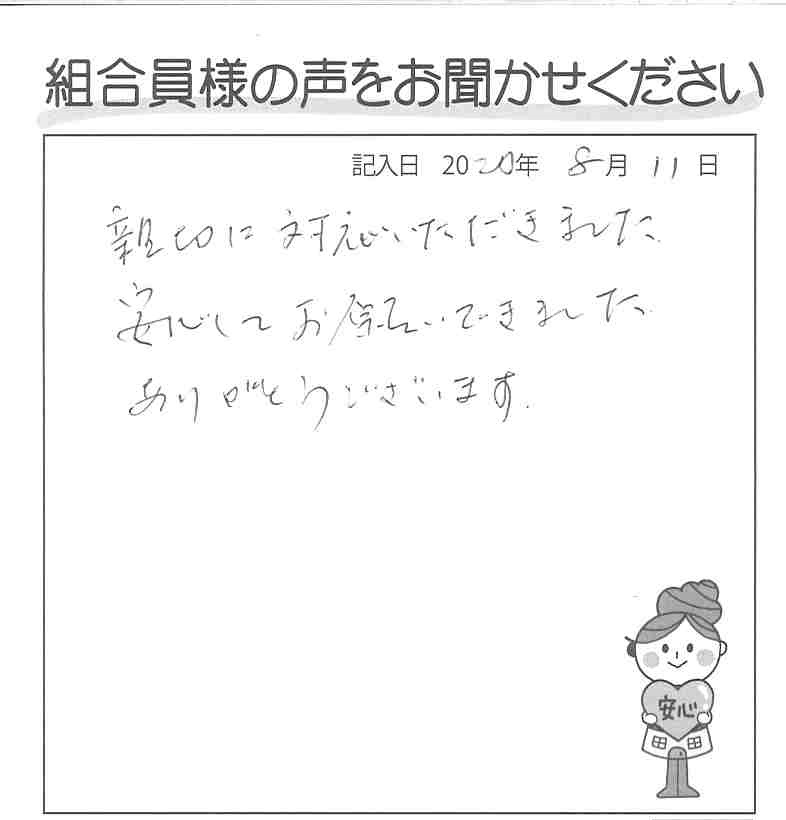 組合員様の声をお聞かせください
記入日 2020年 8月 11日
親切に対応いただきました。
安心してお願いできました。
ありがとうございます.
安心